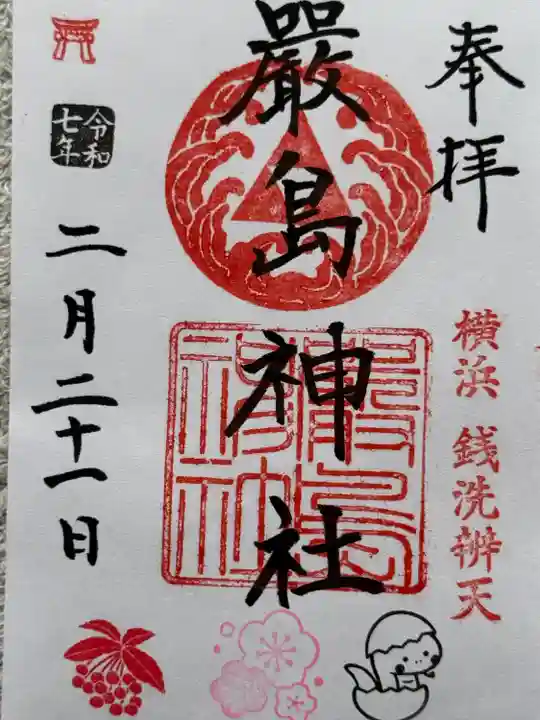 奉拝
横浜 銭洗辨天
嚴島神社
嚴島
神社
令和
七年
二月二十一日